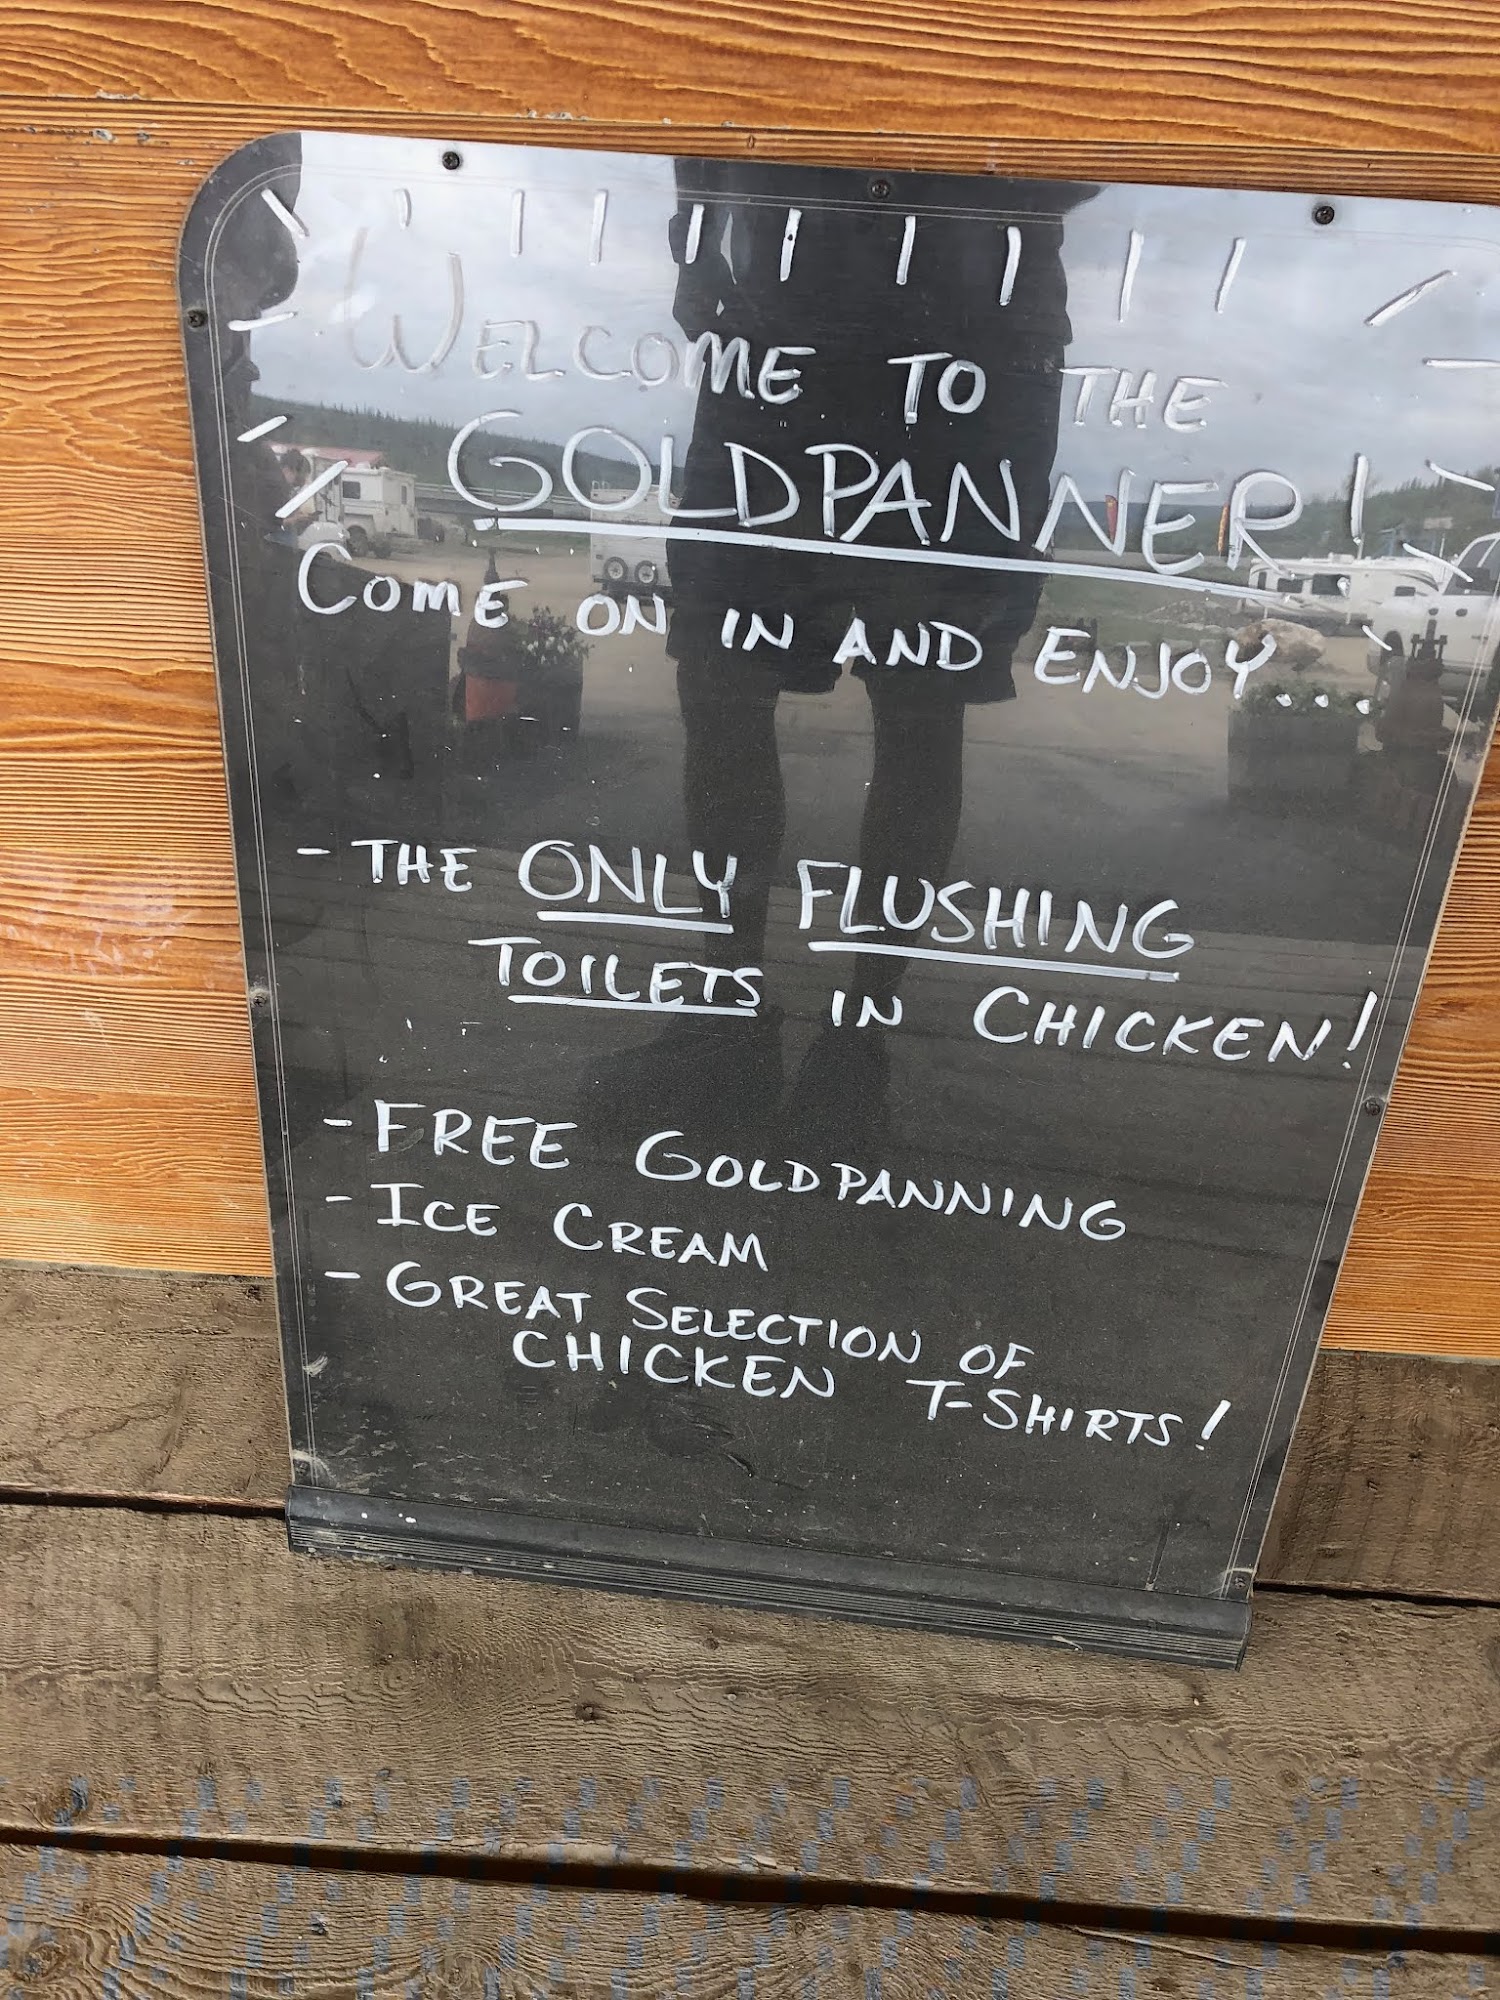 WELCOME TO THE
GOLDPANNER!
COME ON IN AND ENJOY...
- THE ONLY FLUSHING
TOILETS IN CHICKEN!
- FREE GOLDPANNING
- ICE CREAM
- GREAT SELECTION OF
CHICKEN T-SHIRTS!